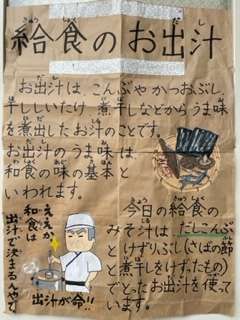 給食のお出汁
お出汁は こんぶや かつおぶし、
干ししいたけ 煮干しなどからうま味
を煮出したお汁のことです。
お出汁のうま味は
和食の味の基本と
いわれます。
今日の給食の
みそ汁は、だしこんぶ
とけずりぶし(さばの節
と煮干しをけずったもの)
でとったお出汁を使って
います。
ええか
和食は
出汁で決まるんやで
出汁が命!!